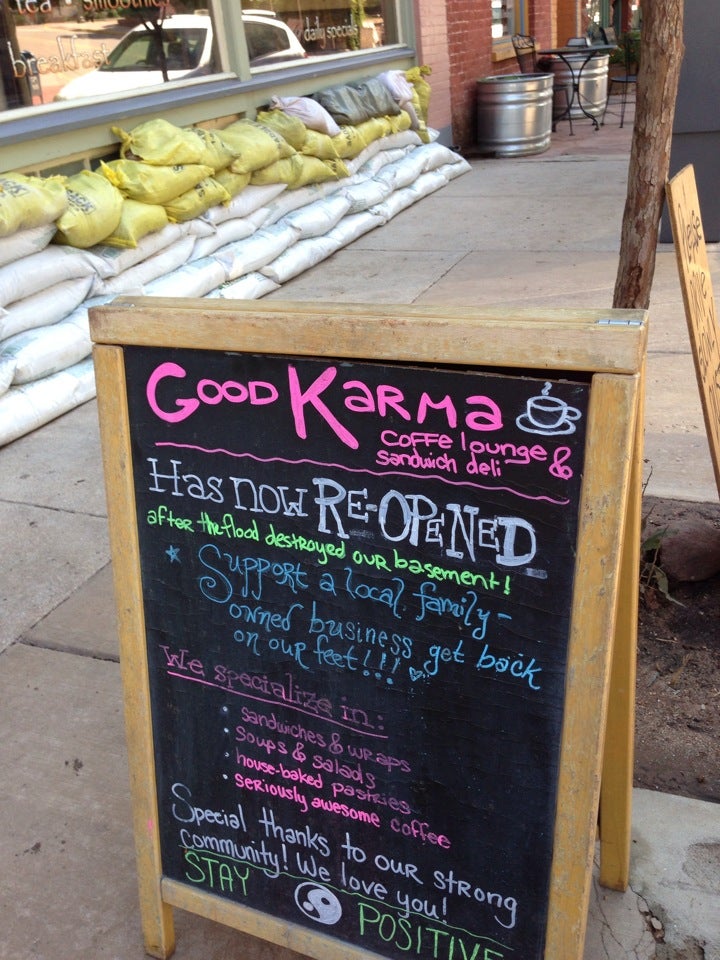 tea · smoothies
breakfast
daily specials
GOOD KARMA
COFFE lounge &
sandwich deli
Has now RE-OPENED
after the flood destroyed our basement!
Support a local family-
owned business get back
on our feet!!!
We specialize in:
• sandwiches & wraps
• soups & salads
• house-baked pastries
• seriously awesome coffee
Special thanks to our strong
community! We love you!
STAY POSITIVE
Please